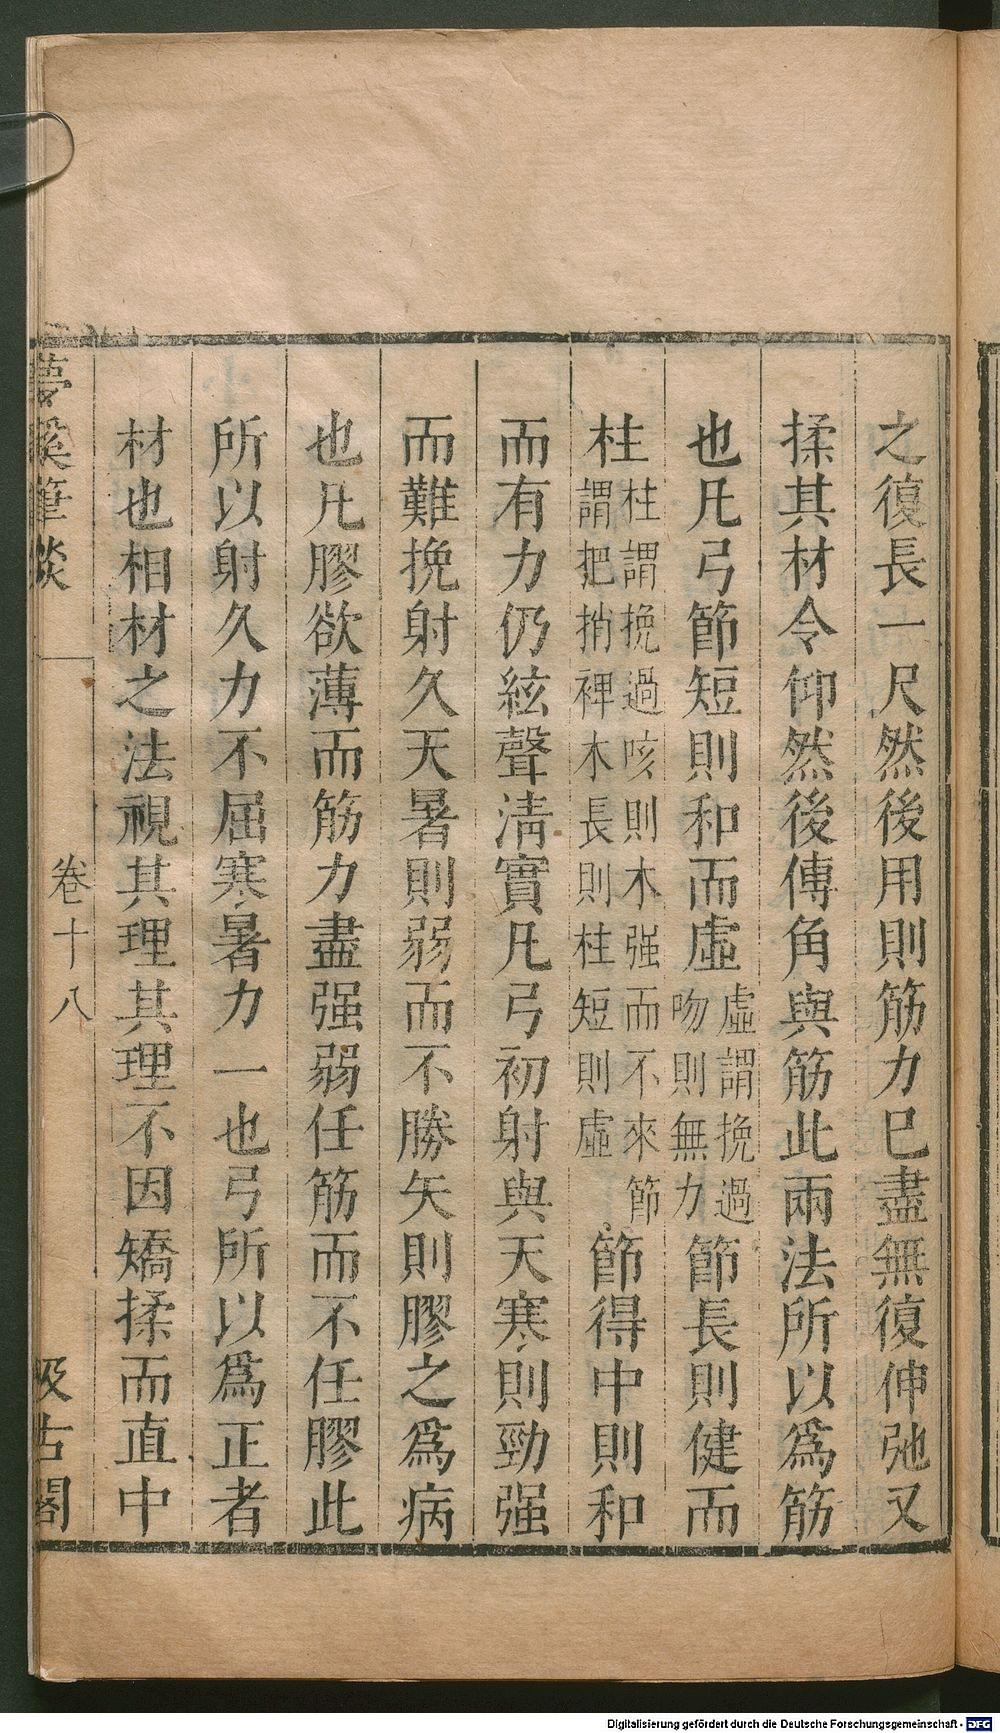 之復長一尺然後用則筋力巳盡無復伸弛又
揉其材令仰然後傅角與筋此兩法所以爲筋
也凡弓節短則和而虛
虛謂挽過
吻則無力
節長則健而
柱
柱謂挽過咳則木强而不來節
謂把捎裨木長則柱短則虛
節得中則和
而有力仍絃聲淸實凡弓初射與天寒則勁强
而難挽射久天暑則弱而不勝矢則膠之爲病
也凡膠欲薄而筋力盡强弱任筋而不任膠此
所以射久力不屈寒暑力一也弓所以爲正者
材也相材之法視其理其理不因矯揉而直中
夢溪筆談
卷十八
汲古閣
Digitalisierung gefördert durch die Deutsche Forschungsgemeinschaft - DFG